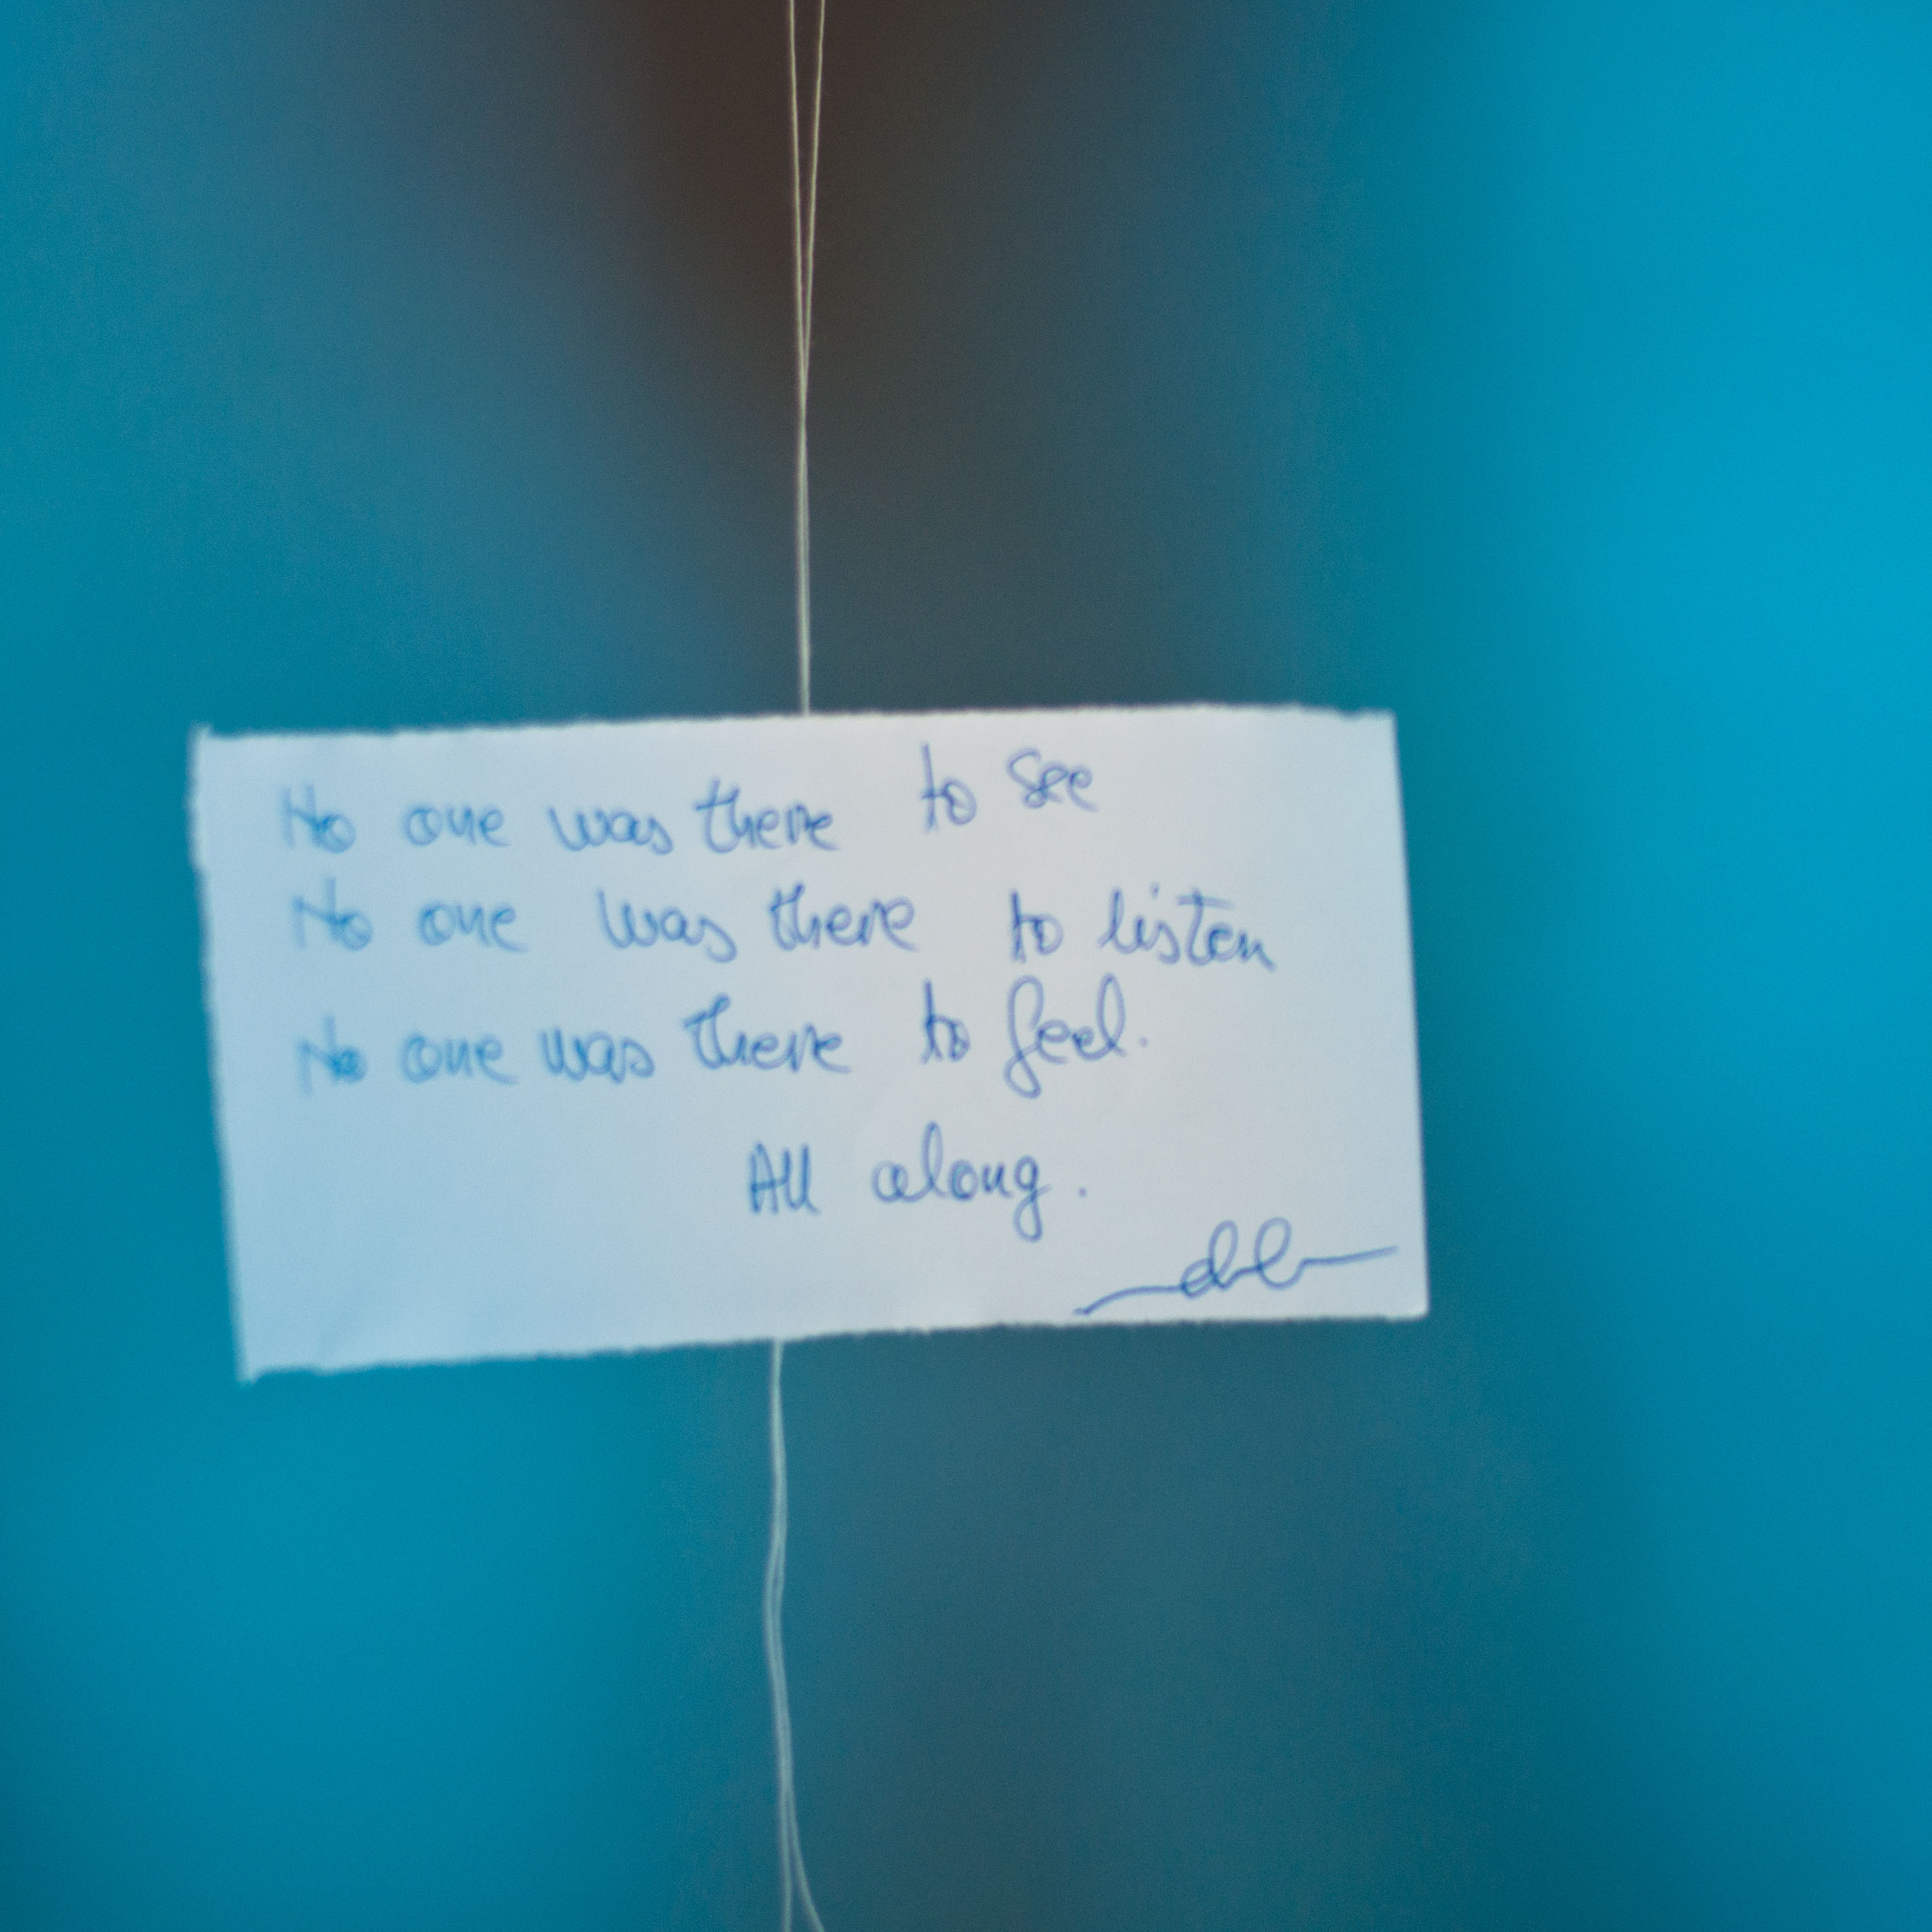 No one was there to see
No one was there to listen
No one was there to feel.
All along.